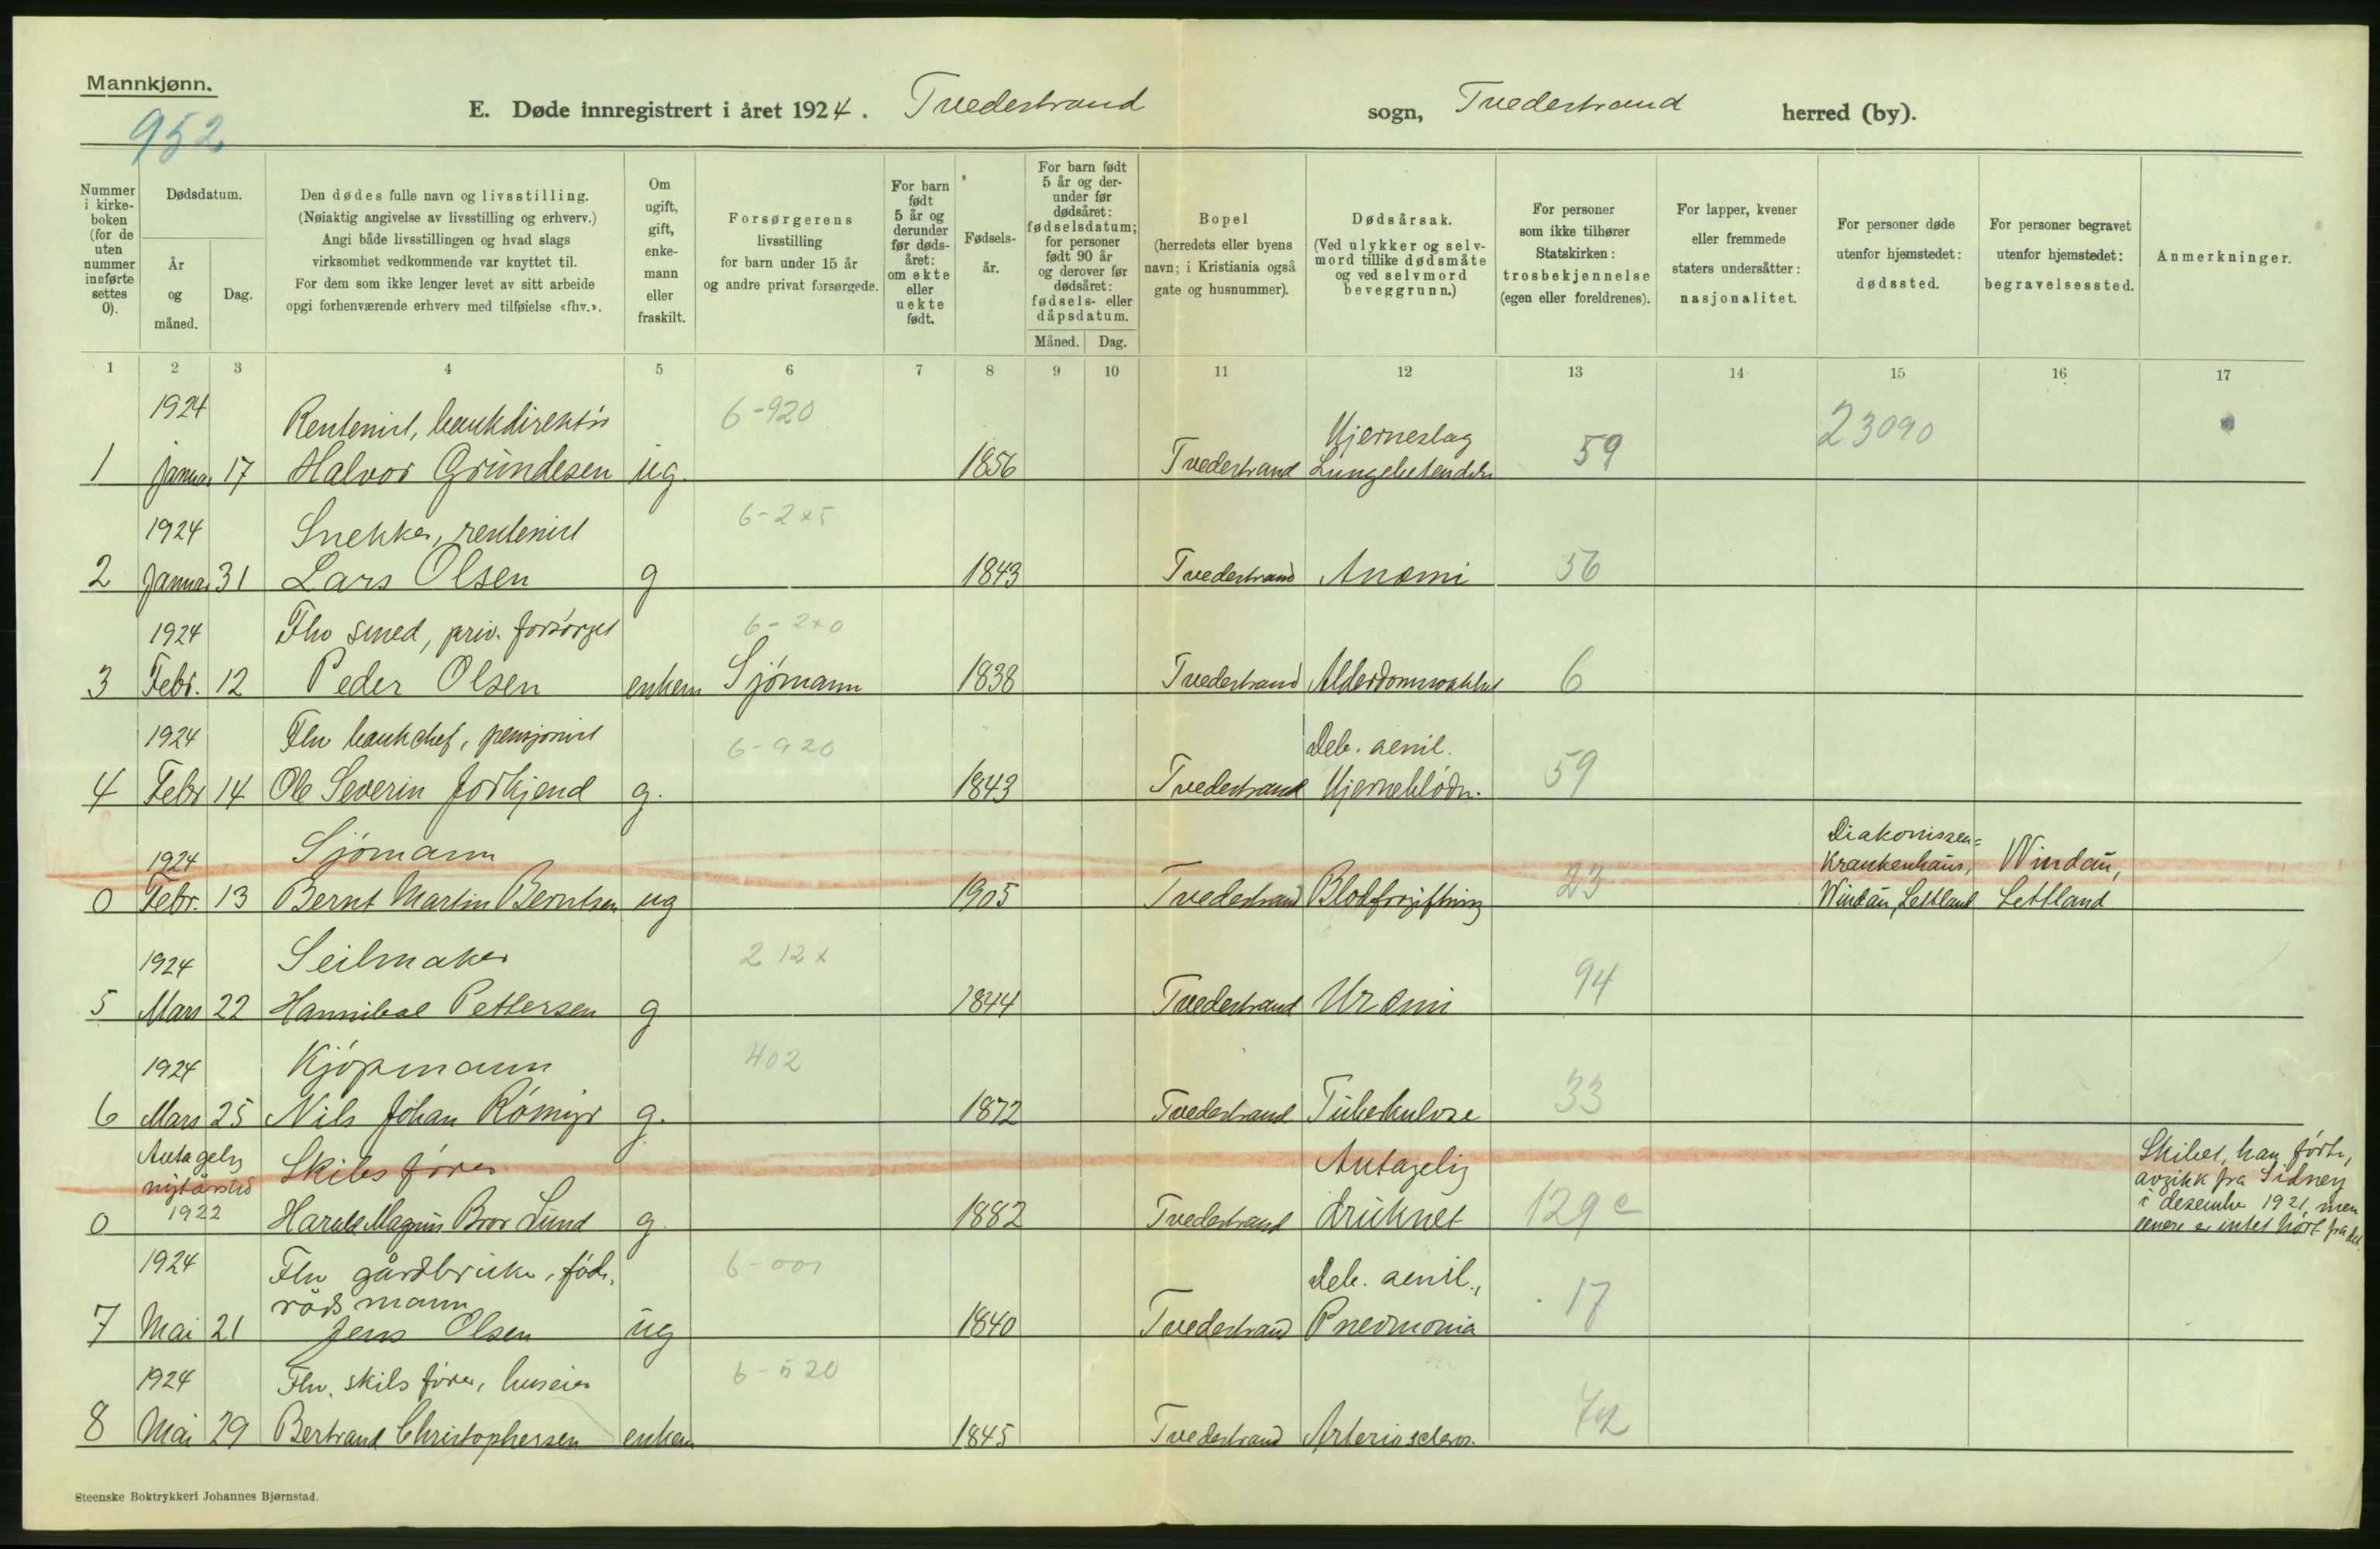 Mannkjønn.
952.
E. Døde innregistrert i året 1924. Tvedestrand sogn, Tvedestrand herred (by).
Nummer i kirke-boken (for de uten nummer innførte settes 0).
Dødsdatum.
År og måned.
Dag.
Den dødes fulle navn og livsstilling.
(Nøiaktig angivelse av livsstilling og erhverv.)
Angi både livsstillingen og hvad slags
virksomhet vedkommende var knyttet til.
For dem som ikke lenger levet av sitt arbeide
opgi forhenværende erhverv med tilføielse «fhv.».
Om ugift, gift, enke-mann eller fraskilt.
Forsørgerens
livsstilling
for barn under 15 år
og andre privat forsørgede.
For barn født 5 år og derunder før døds-året: om ekte eller uekte født.
Fødsels-år.
For barn født 5 år og der-under før dødsåret: fødselsdatum; for personer født 90 år og derover før dødsåret: fødsels- eller dåpsdatum.
Måned. Dag.
Bopel
(herredets eller byens
navn; i Kristiania også
gate og husnummer).
Dødsårsak.
(Ved ulykker og selv-
mord tillike dødsmåte
og ved selvmord
beveggrunn.)
For personer
som ikke tilhører
Statskirken:
trosbekjennelse
(egen eller foreldrenes).
For lapper, kvener
eller fremmede
staters undersåtter:
nasjonalitet.
For personer døde
utenfor hjemstedet:
dødssted.
For personer begravet
utenfor hjemstedet:
begravelsessted.
Anmerkninger.
1 2 3 4 5 6 7 8 9 10 11 12 13 14 15 16 17
1924 Rentenist, bankdirektør 6-920 Hjerneslag 23090
1 Januar 17 Halvor Grundesen ug. 1856 Tvedestrand Lungebetendelse 59
1924 Snekker, rentenist 6-2x5
2 Januar 31 Lars Olsen g 1843 Tvedestrand Anæmi 56
1924 Fhv smed, priv. forsørget 6-2x0
3 Febr. 12 Peder Olsen enkem Sjømann 1838 Tvedestrand Alderdomssvakhet 6
1924 Fhv bankchef, pensjonist 6-920 Deb. senil.
4 Febr 14 Ole Severin Forkjend g. 1843 Tvedestrand Hjerneblødn. 59
1924 Sjømann Diakonissen=
Krankenhaus, Windau,
0 Febr. 13 Bernt Martin Berntsen ug 1905 Tvedestrand Blodforgiftning 23 Windau, Lettland Lettland
1924 Seilmaker 2 12x
5 Mars 22 Hannibal Pettersen g 1844 Tvedestrand Uræmi 94
1924 Kjøpmann 402
6 Mars 25 Nils Johan Rømyr g. 1872 Tvedestrand Tuberkulose 33
Antagelig nytårstid 1922 Skibsfører Antagelig Skibet, han førte,
avgikk fra Sidney
i desember 1921, men
0 Harald Magnus Bror Lund g. 1882 Tvedestrand druknet 129c senere er intet hørt fra det.
1924 Fhv gårdbruker, føde- 6-001 Deb. senil.,
rådsmann
7 Mai 21 Jens Olsen ug 1840 Tvedestrand Pneumonia 17
1924 Fhv. skibsfører, huseier 6-520
8 Mai 29 Bertrand Christophersen enkem 1845 Tvedestrand Arterioscleros. 72
Steenske Boktrykkeri Johannes Bjørnstad.